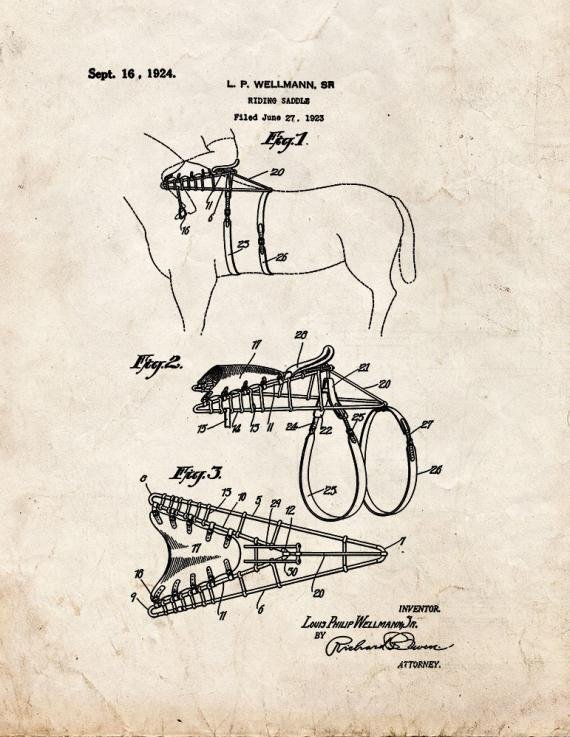 Sept. 16, 1924.
L. P. WELLMANN, SR
RIDING SADDLE
Filed June 27, 1923
Fig.1.
20
16
11
6
25
26
Fig.2.
17
28
21
20
15
14
13
11
24
22
25
27
25
26
Fig.3.
8
13
10
5
29
12
7
17
18
30
20
9
11
6
INVENTOR.
LOUIS PHILIP WELLMANN, JR.
BY
Richard Owen
ATTORNEY.